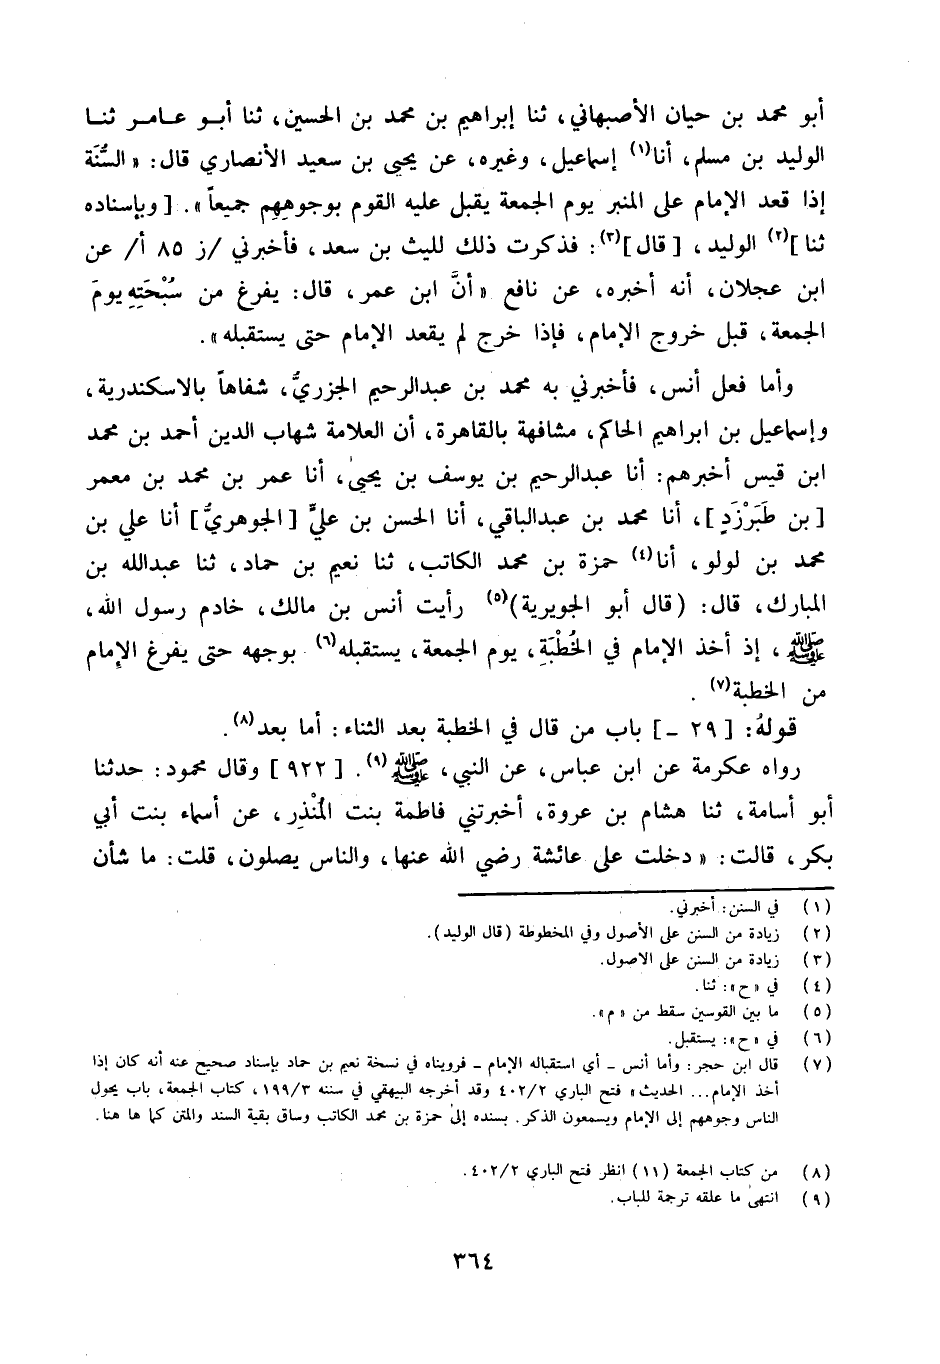 أبو محمد بن حيان الأصبهاني، ثنا إبراهيم بن محمد بن الحسين، ثنا أبو عامر ثنا
الوليد بن مسلم، أنا(١) إسماعيل، وغيره، عن يحيى بن سعيد الأنصاري قال: «السُّنَة
إذا قعد الإمام على المنبر يوم الجمعة يقبل عليه القوم بوجوهِهِم جميعاً». [وبإسناده
ثنا](٢) الوليد، [قال](٣): فذكرت ذلك لليث بن سعد، فأخبرني /ز ٨٥ أ/ عن
ابن عجلان، أنه أخبره، عن نافع «أنَّ ابن عمر، قال: يفرغ من سُبْحَتِهِ يومَ
الجمعة، قبل خروج الإمام، فإذا خرج لم يقعد الإمام حتى يستقبله».
وأما فعل أنس، فأخبرني به محمد بن عبدالرحيم الجزريُّ، شفاهاً بالاسكندرية،
وإسماعيل بن ابراهيم الحاكم، مشافهة بالقاهرة، أن العلامة شهاب الدين أحمد بن محمد
ابن قيس أخبرهم: أنا عبدالرحيم بن يوسف بن يحيىٰ، أنا عمر بن محمد بن معمر
[بن طَبَرْزَدٍ]، أنا محمد بن عبدالباقي، أنا الحسن بن عليٍّ [الجوهريُّ] أنا علي بن
محمد بن لولو، أنا(٤) حمزة بن محمد الكاتب، ثنا نعيم بن حماد، ثنا عبدالله بن
المبارك، قال: (قال أبو الجويرية)(٥) رأيت أنس بن مالك، خادم رسول الله،
ﷺ، إذ أخذ الإمام في الخُطْبَةِ، يوم الجمعة، يستقبله(٦) بوجهه حتى يفرغ الإمام
من الخطبة(٧).
قولهُ: [٢٩ -] باب من قال في الخطبة بعد الثناء: أما بعد(٨).
رواه عكرمة عن ابن عباس، عن النبي، ﷺ(٩). [٩٢٢] وقال محمود: حدثنا
أبو أسامة، ثنا هشام بن عروة، أخبرتني فاطمة بنت المُنْذِر، عن أسماء بنت أبي
بكر، قالت: «دخلت على عائشة رضي الله عنها، والناس يصلون، قلت: ما شأن
(١) في السنن: أخبرني.
(٢) زيادة من السنن على الأصول وفي المخطوطة (قال الوليد).
(٣) زيادة من السنن على الاصول.
(٤) في «ح»: ثنا.
(٥) ما بين القوسين سقط من «م».
(٦) في «ح»: يستقبل.
(٧) قال ابن حجر: وأما أنس - أي استقباله الإمام - فرويناه في نسخة نعيم بن حماد بإسناد صحيح عنه أنه كان إذا
أخذ الإمام... الحديث» فتح الباري ٤٠٢/٢ وقد أخرجه البيهقي في سننه ١٩٩/٣، كتاب الجمعة، باب يحول
الناس وجوههم إلى الإمام ويسمعون الذكر. بسنده إلىٰ حمزة بن محمد الكاتب وساق بقية السند والمتن كما ها هنا.
(٨) من كتاب الجمعة (١١) انظر فتح الباري ٤٠٢/٢.
(٩) انتهىٰ ما علقه ترجمة للباب.
٣٦٤